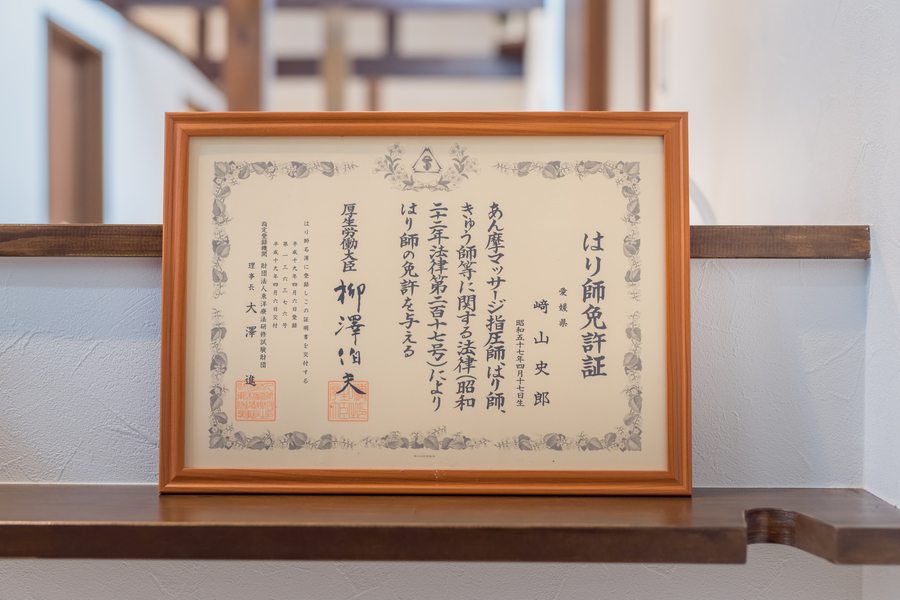 はり師免許証
愛媛県
﨑山史郎
昭和五十七年四月十七日生
あん摩マッサージ指圧師、はり師、
きゅう師等に関する法律(昭和
二十二年法律第二百十七号)により
はり師の免許を与える
厚生労働大臣 柳澤伯夫
はり師名簿に登録しこの証明書を交付する
平成十九年四月六日登録
第一三六三七六号
平成十九年四月六日交付
指定登録機関 財団法人東洋療法研修試験財団
理事長 大澤 進